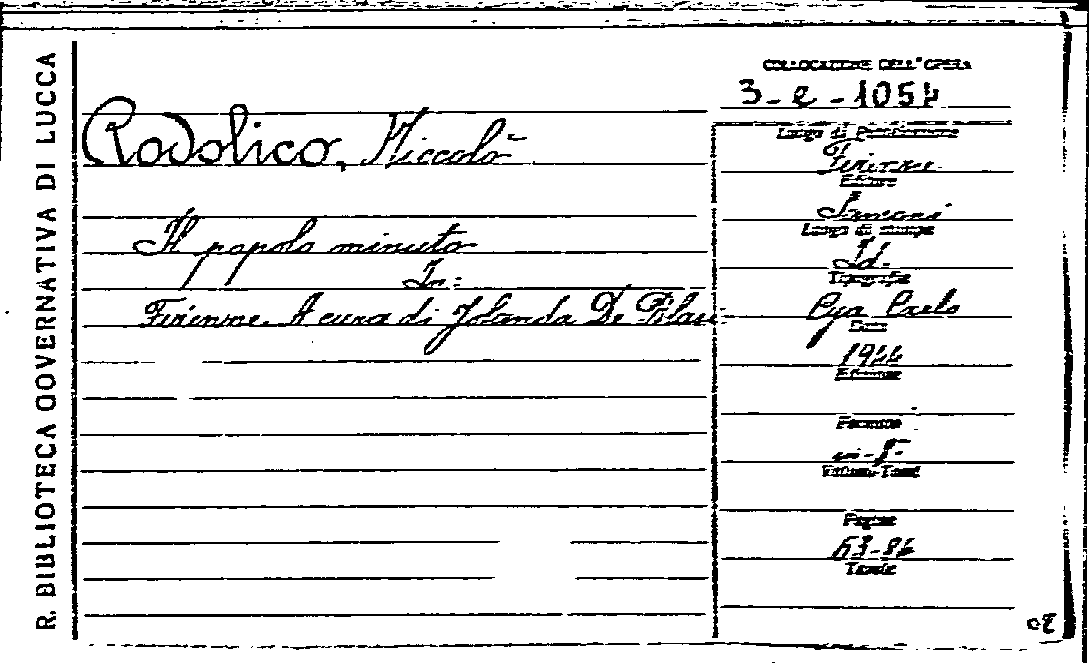 R. BIBLIOTECA GOVERNATIVA DI LUCCA
Rodolico, Niccolò
Il popolo minuto
In:
Firenze. A cura di Jolanda De Blasi
COLLOCAZIONE DELL'OPERA
3-e-1054
Luogo di pubblicazione
Firenze
Editore
Sansoni
Luogo di stampa
Id.
Tipografia
Data
1944
Edizione
Formato
in-8°
Volumi-Tomi
Pagine
63-84
Tavole